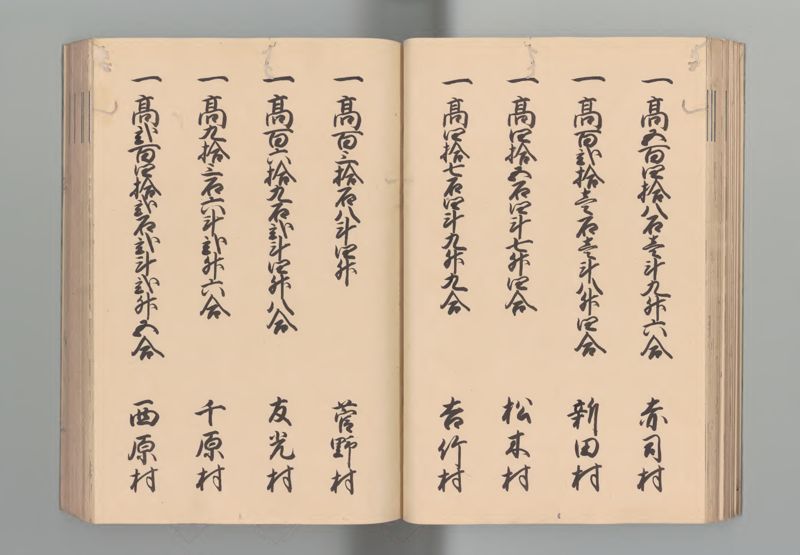 一高五百四拾八石壱斗九升六合 赤司村
一高百弐拾壱石壱斗八升四合 新田村
一高四拾五石四斗七升四合 松木村
一高四拾七石四斗九升九合 吉竹村
一高百三拾石八斗四升 菅野村
一高百六拾九石弐斗四升八合 友光村
一高九拾三石六斗弐升六合 千原村
一高弐百四拾弐石弐斗弐升五合 西原村